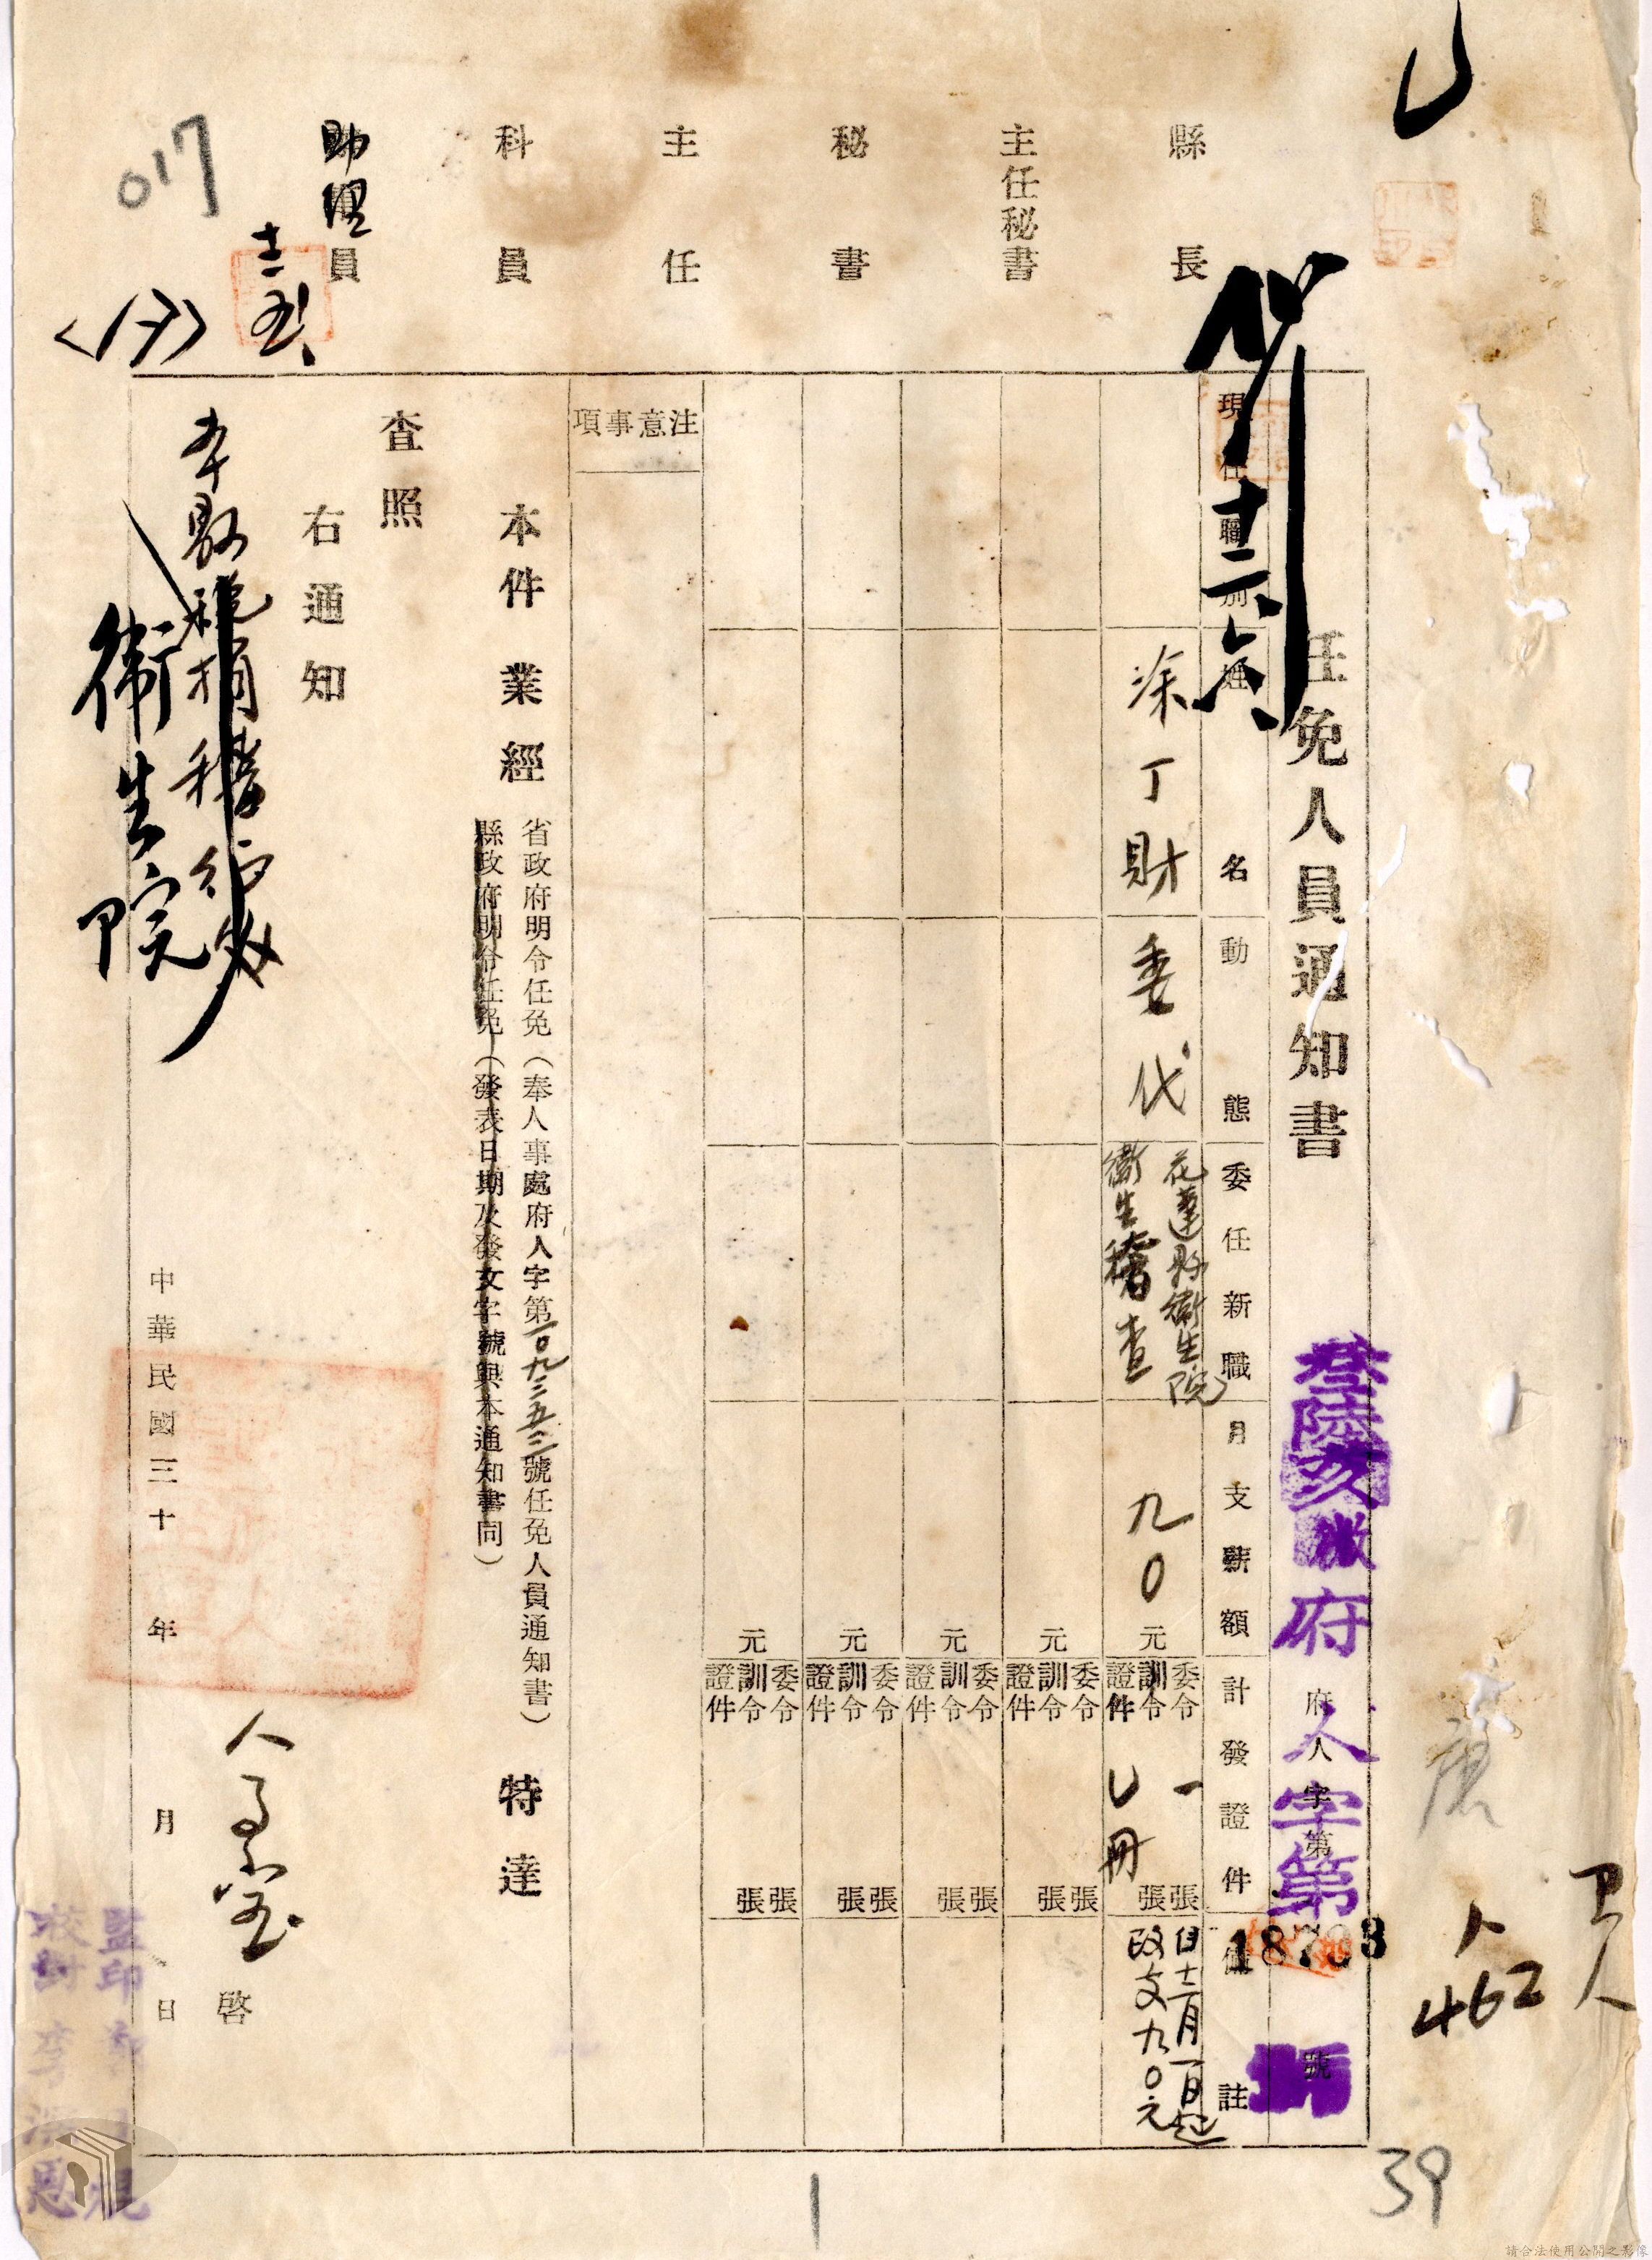 縣長
主任秘書
秘書
主任
科員
助理員
十二、五
017
任免人員通知書
叁陸亥微府人字第
府人字第 號
十二、六
現任職別
姓名
動態
委任新職
月支薪額
計發證件
備註
涂丁財
委代
花蓮縣衛生院
衛生稽查
九0元
委令 一張
訓令 張
證件 冊
自十二月一日起
改支九0元
元
委令 張
訓令 張
證件
元
委令 張
訓令 張
證件
元
委令 張
訓令 張
證件
元
委令 張
訓令 張
證件
注意事項
本件業經
省政府明令任免(奉人事處府人字第一0九三五三號任免人員通知書)
縣政府明令任免(發表日期及發文字號與本通知書同)
特達
查照
右通知
本縣稅捐稽征處
衛生院
人事室 啓
中華民國三十 年 月 日
監印
校對
人
462
39
1
請合法使用公開之影像